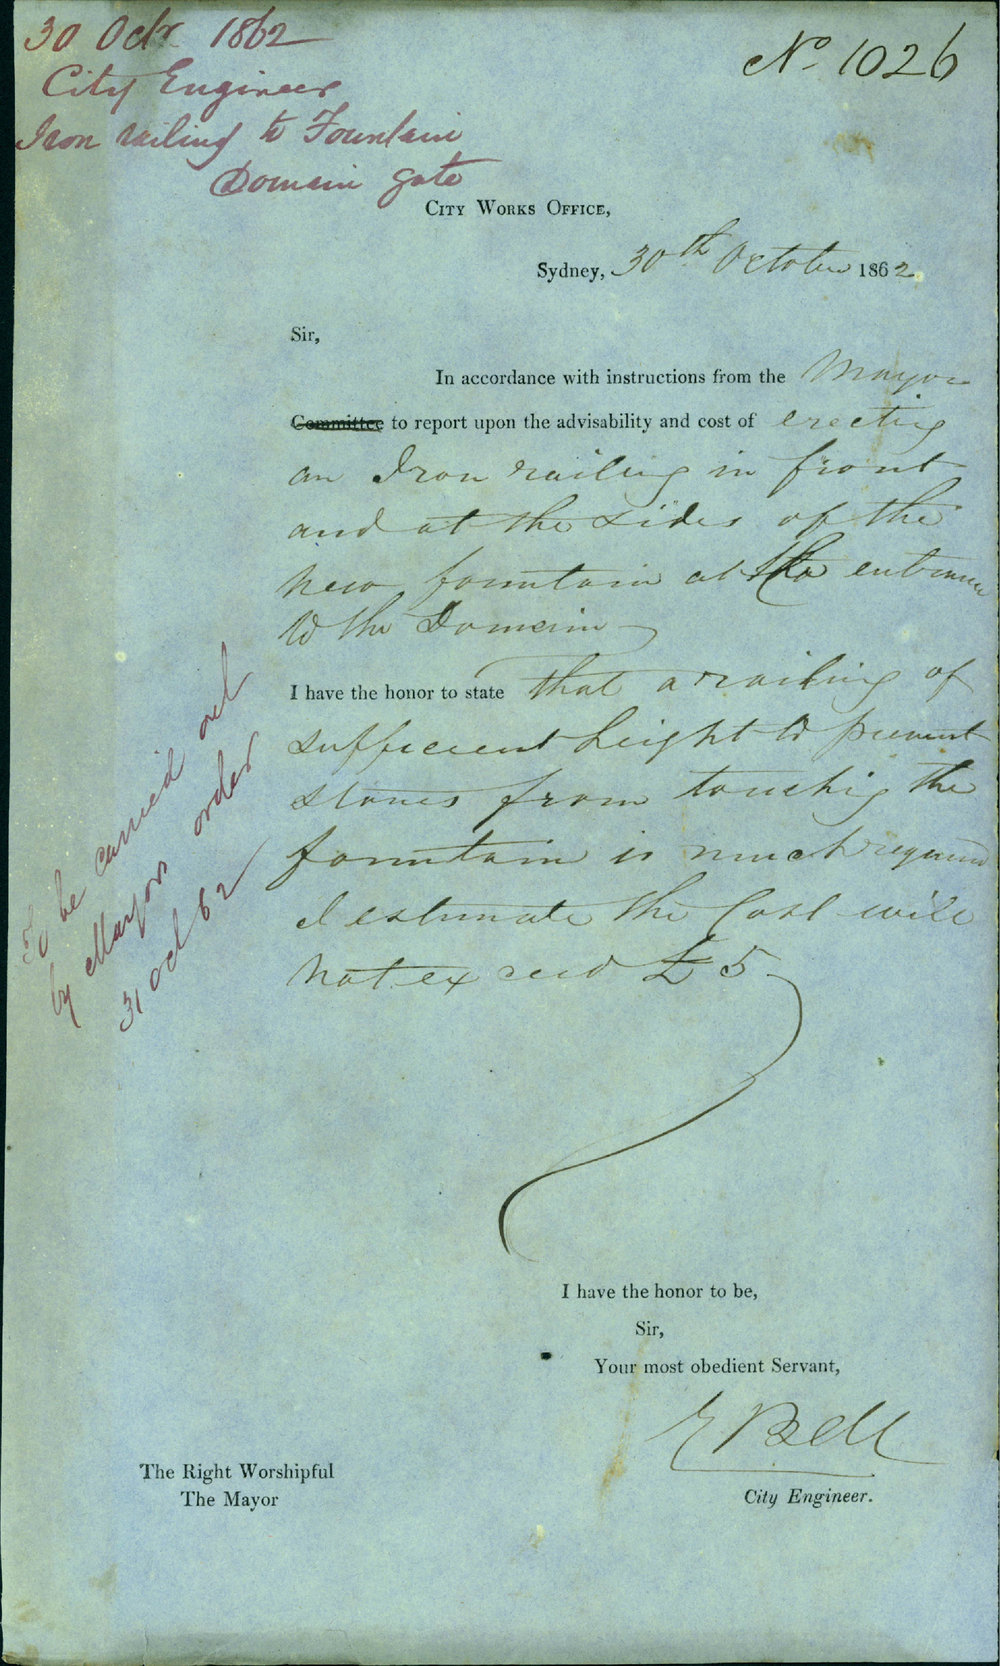 30 Octr 1862
City Engineer
Iron railing to Fountain
Domain gate
No. 1026
City Works Office,
Sydney, 30th October 1862.
Sir,
In accordance with instructions from the Mayor
Committee to report upon the advisability and cost of erecting
an Iron railing in front
and at the sides of the
new fountain at the entrance
to the Domain
I have the honor to state that a railing of
sufficient height to prevent
stones from touching the
fountain is much required
I estimate the Cost will
not exceed £5
To be carried out
by Mayors order
31 Oct 62
I have the honor to be,
Sir,
Your most obedient Servant,
E Bell
City Engineer.
The Right Worshipful
The Mayor